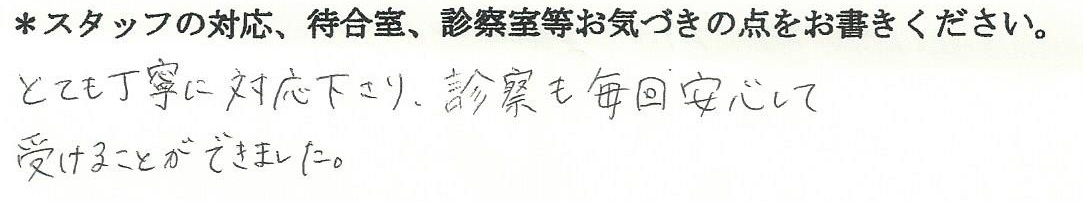 ＊スタッフの対応、待合室、診察室等お気づきの点をお書きください。
とても丁寧に対応下さり、診察も毎回安心して
受けることができました。